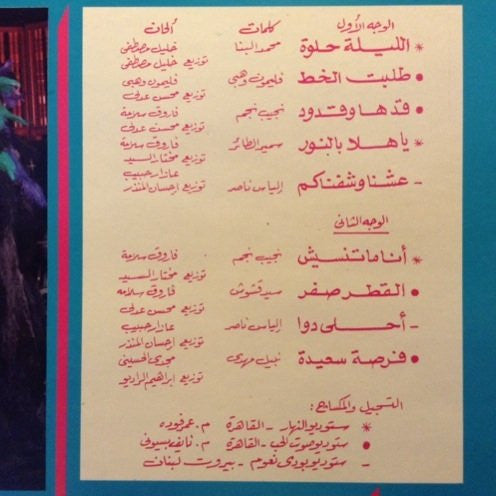 الوجه الأول كلمات ألحان
* الليلة حلوة محمد البنا خليل مصطفى
توزيع خليل مصطفى
• طلبت الخط فليمون وهبي فليمون وهبي
توزيع محسن عدلي
• قدها وقدود نجيب نجم فاروق سلامة
توزيع محسن عدلي
* ياهلا بالنور سمير الطائر فاروق سلامة
توزيع مختار السيد
- عشنا وشفناكم الياس ناصر عازار حبيب
توزيع إحسان المنذر
الوجه الثاني
* أنا ماتنسيش نجيب نجم فاروق سلامة
توزيع مختار السيد
• القطر صفر سيد قشوش فاروق سلامه
توزيع محسن عدلي
- أحلى دوا الياس ناصر عازار حبيب
توزيع إحسان المنذر
• فرصة سعيدة نبيل مهدي الحسيني
توزيع ابراهيم الراديو
التسجيل والمكساج:
* ستوديو النهار - القاهرة م.
• ستوديو صوت الحب - القاهرة م. نايف بسيوني
- ستوديو بودي نعوم - بيروت لبنان